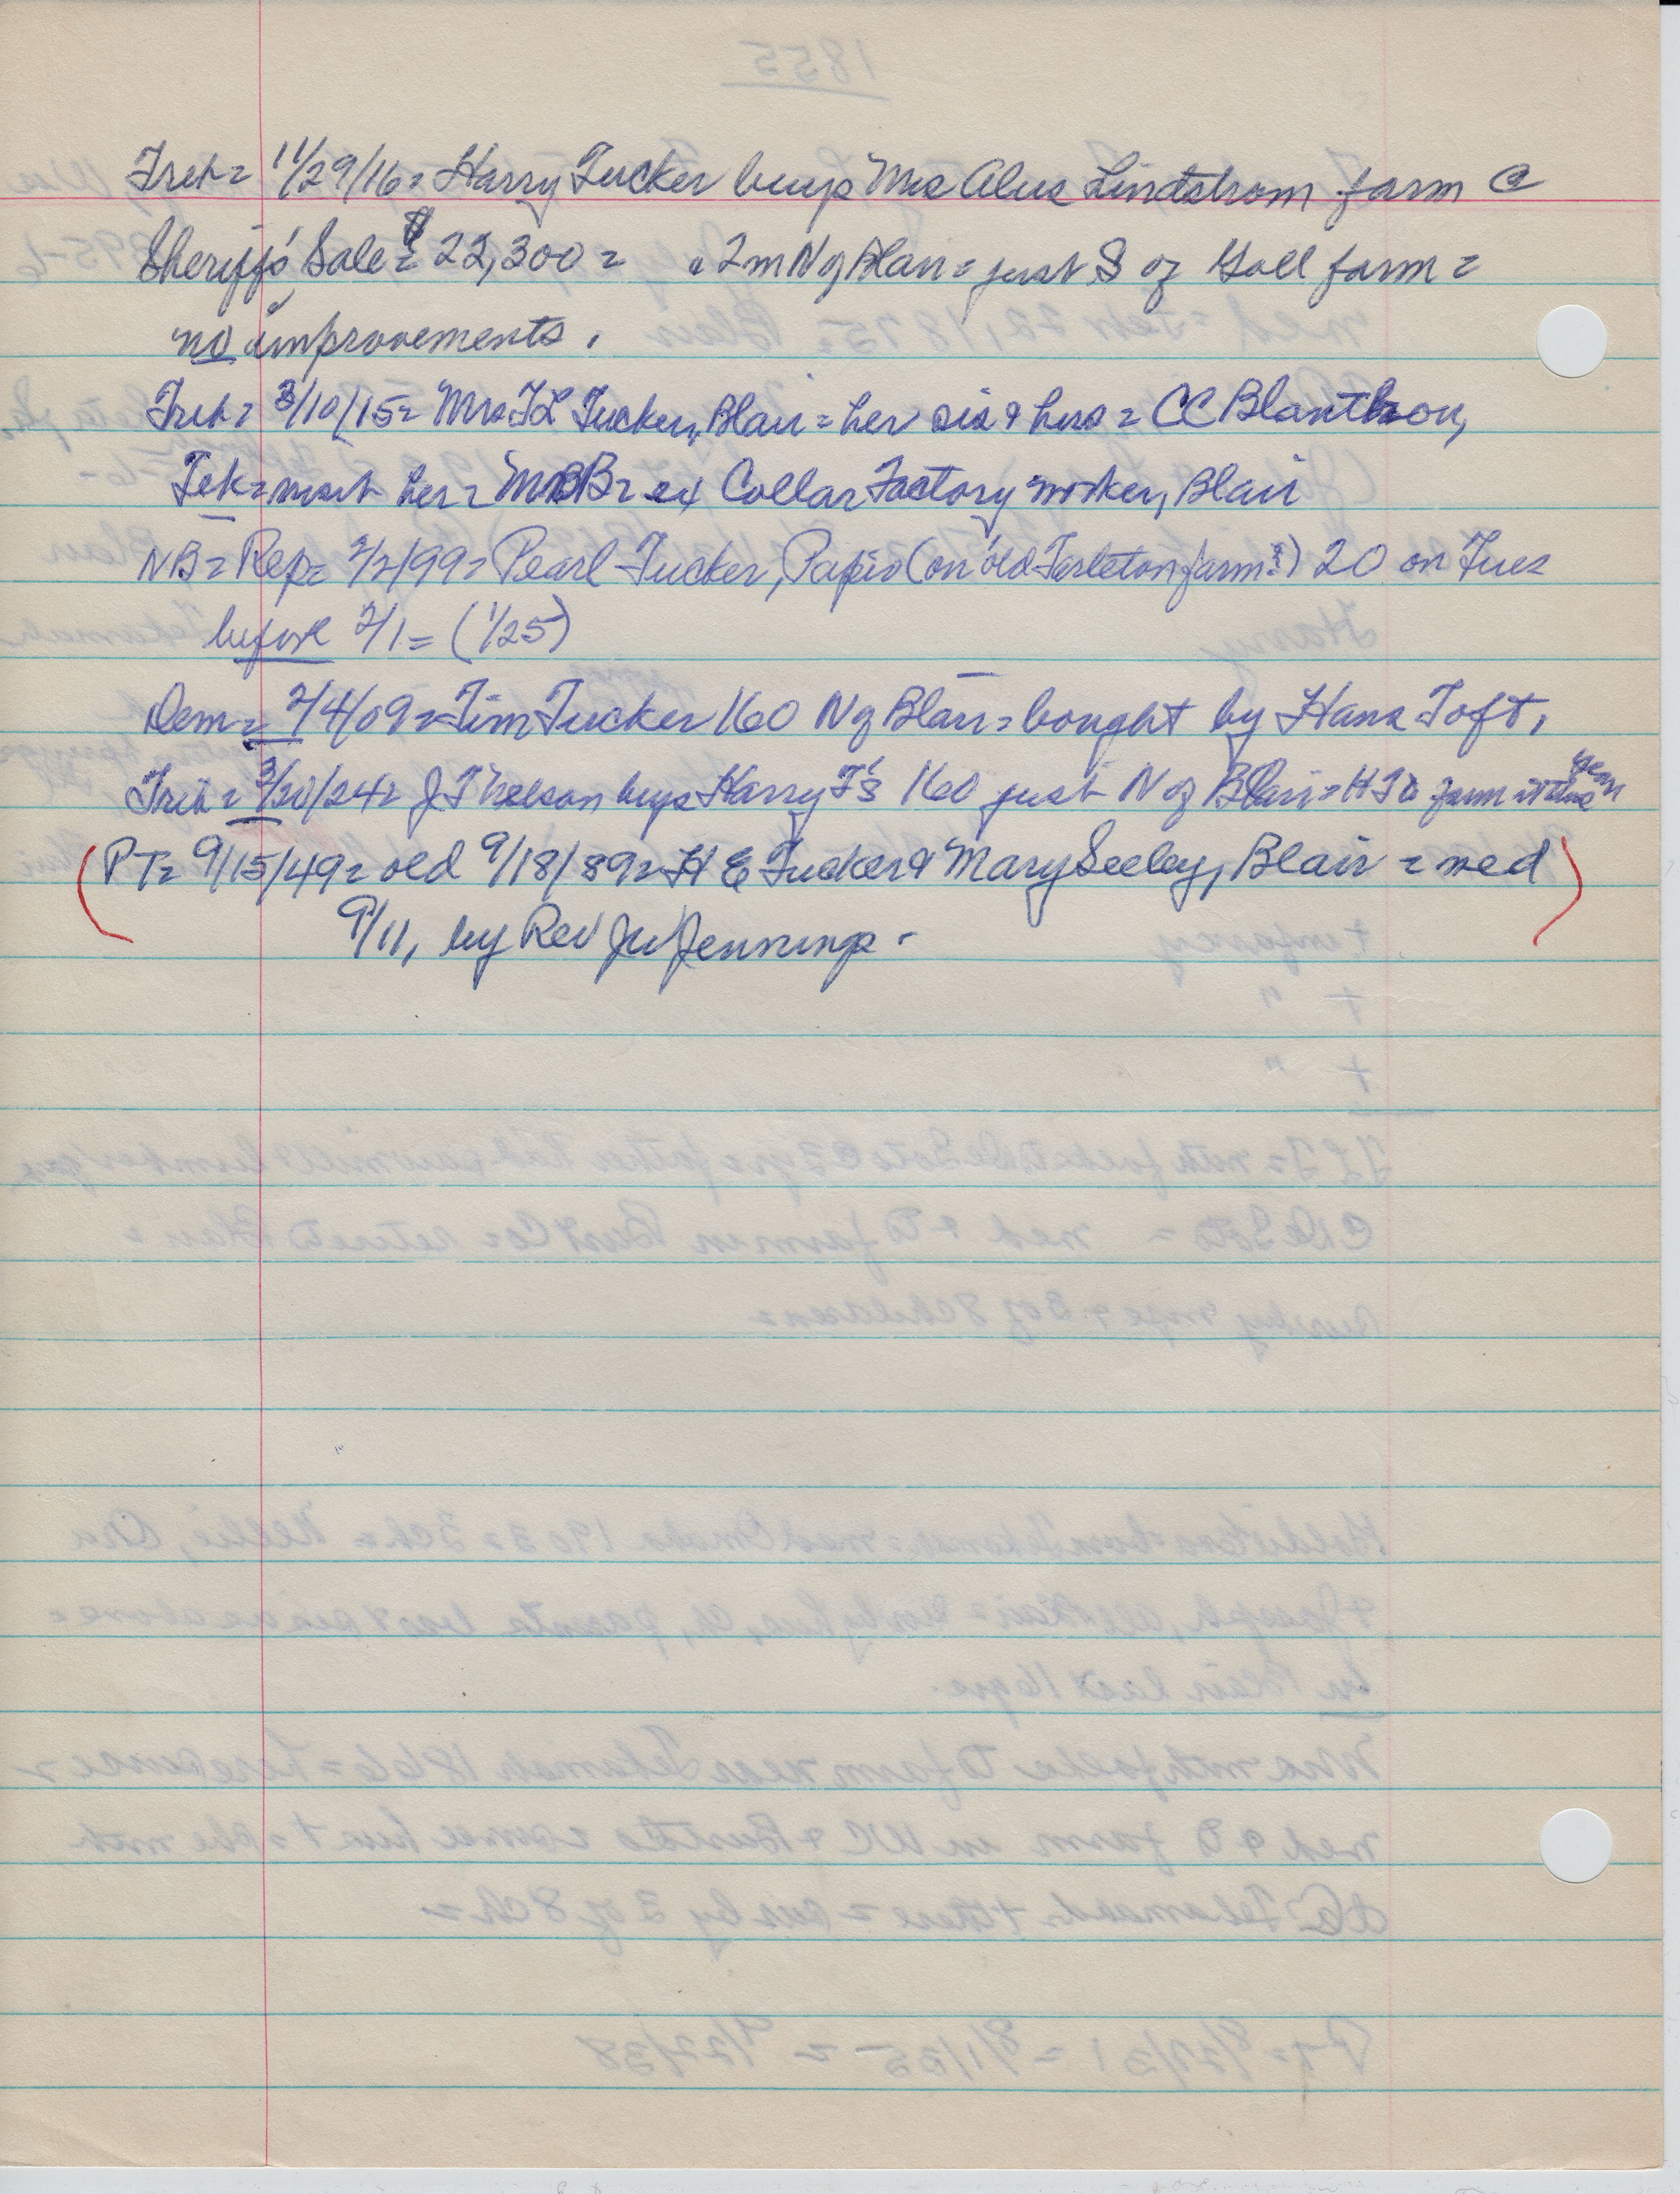 Trib = 11/29/16 = Harry Tucker buys Mrs Alus Lindstrom farm @
Sheriff's Sale = $22,300 = 2 m N of Blair = just S of Goll farm =
no improvements.
Trib = 3/10/15 = Mrs TL Tucker, Blair = her sis & hus = CC Blanthon,
Tek = visit her = Mrs B = ex Collar Factory worker, Blair
NB = Rep = 2/2/99 = Pearl Tucker, Papio (on old Tarleton farm?) 20 on Tues
before 2/1 = (1/25)
Dem = 2/4/09 = Tim Tucker 160 N of Blair = bought by Hans Toft.
Trib = 3/20/24 = J T Nelson buys Harry T's 160 just N of Blair = HT to farm it this year
(PT = 9/15/49 = old 9/18/89 = H E Tucker & Mary Seeley, Blair = med
9/11, by Rev JW Jennings.)